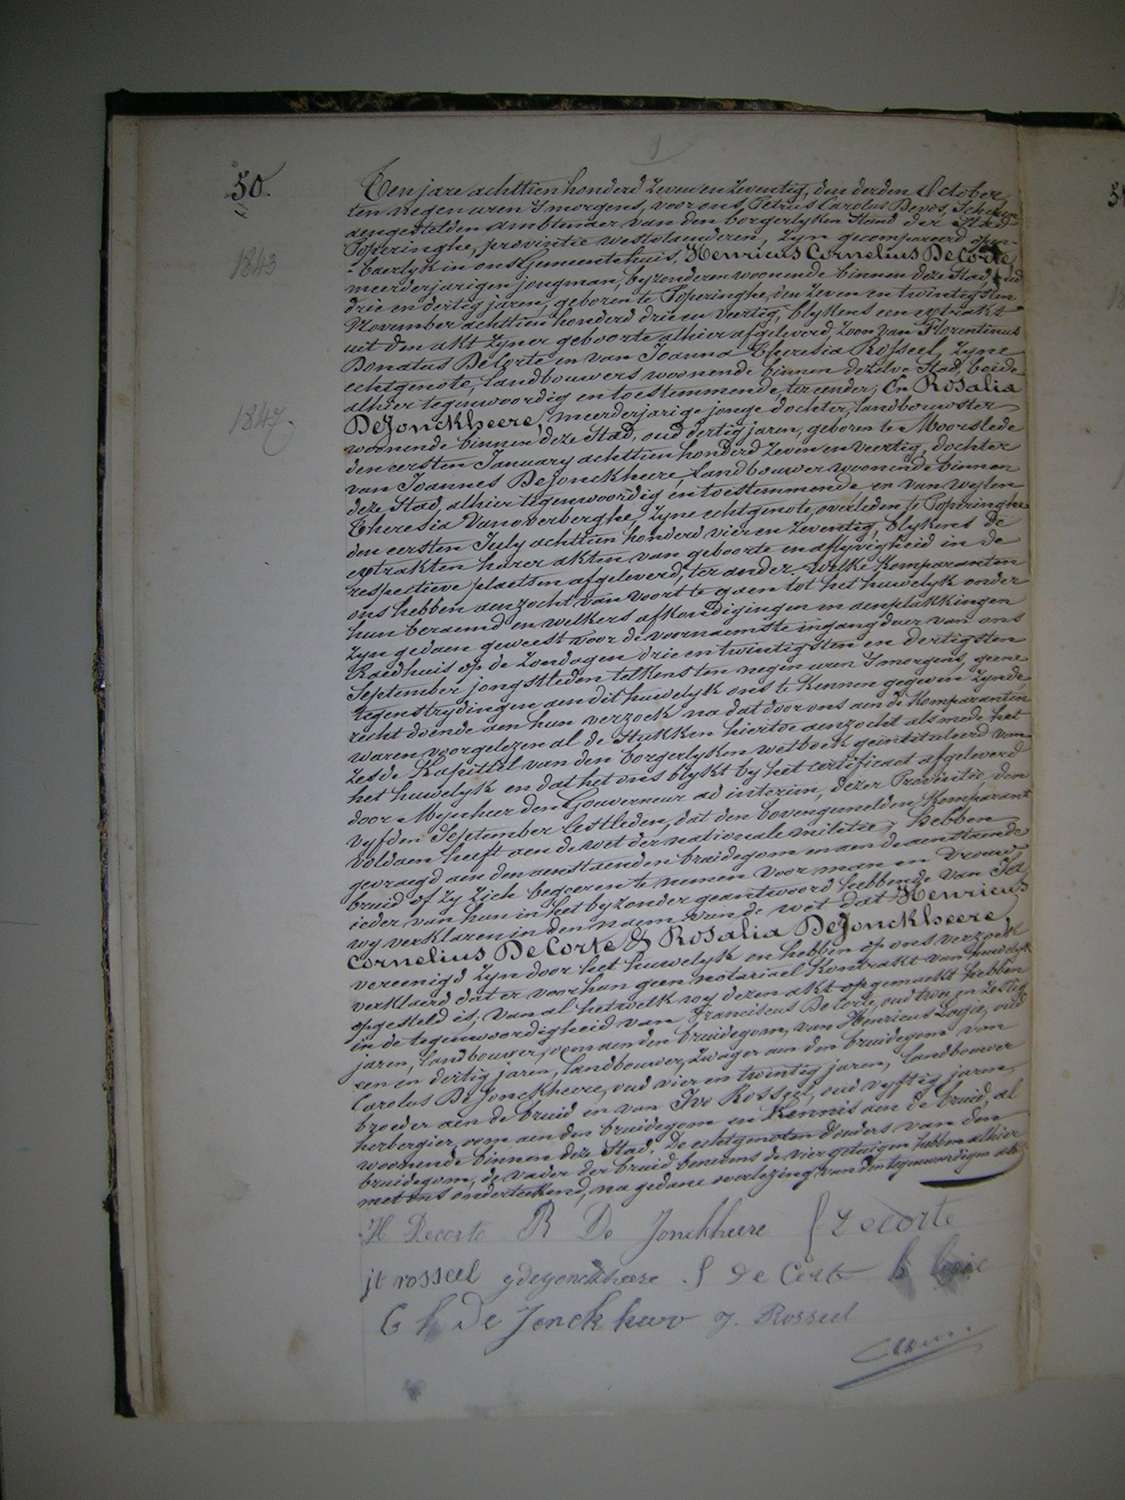 50.
1843
1847.
Ten jare achttien honderd zeven en zeventig, den derden October
ten negen uren 's morgens, voor ons, Petrus Carolus Devos, Schepen
aengestelden ambtenaer van den borgerlyken Stand der Stad
Poperinghe, provintie westvlaenderen, Zyn gecompareerd open-
-baerlyk in ons Gemeentehuis, Henricus Cornelius DeCorte,
meerderjarigen jongman, byzonderen woonende binnen deze Stad, oud
drie en dertig jaren, geboren te Poperinghe, den Zeven en twintigsten
November achttien honderd drie en veertig, blykens een extrakt
uit den akt zyner geboorte alhier afgeleverd, Zoon van Florentinus
Donatus DeCorte en van Joanna Theresia Rosseel, Zyne
echtgenote, landbouwers woonende binnen dezelve Stad, beide
alhier tegenwoordig en toestemmende, ter eender; En Rosalia
DeJonckheere, meerderjarige jonge dochter, landbouwster
woonende binnen deze Stad, oud dertig jaren, geboren te Moorslede
den eersten January achttien honderd Zeven en veertig, dochter
van Joannes Dejonckheere, landbouwer woonende binnen
deze Stad, alhier tegenwoordig en toestemmende en van wylen
Theresia Vanoverberghe, Zyne echtgenote, overleden te Poperinghe
den eersten July achttien honderd vier en Zeventig, blykens de
extrakten harer akten van geboorte en aflyvigheid in de
respectieve plaetsen afgeleverd, ter ander. welke Komparanten
ons hebben aenzocht van voort te gaen tot het huwelyk onder
hun beraemd en welkers afkondigingen en aenplakkingen
Zyn gedaen geweest voor de voornaemste ingangdeur van ons
Raedhuis op de Zondagen drie en twintigsten en dertigsten
September jongstleden telkens ten negen uren 's morgens, geene
tegenstrydingen aen dit huwelyk ons te kennen gegeven Zynde,
recht doende aen hun verzoek na dat door ons aen de Komparanten
waren voorgelezen al de Stukken hiertoe aenzocht alsmede het
Zesde Kapittel van den borgerlyken wetboek geïntituleerd van
het huwelyk en dat het ons blykt by het certificaet afgeleverd
door Mynheer den Gouverneur ad interim, dezer Provintie, den
vyfden September lestleden, dat den bovengemelden Komparant
voldaen heeft aen de wet der nationale militie, hebben
gevraegd aen den aenstaenden bruidegom en aen de aenstaende
bruid of zy Zich begeeren te nemen voor man en vrouw,
ieder van hun in het byzonder geantwoord hebbende van Ja,
wy verklaren in den naem van de wet dat Henricus
Cornelius DeCorte & Rosalia DeJonckheere,
vereenigd Zyn door het huwelyk en hebben op ons verzoek
verklaerd dat er voor hun geen notariael Kontrakt van huwelyk
opgesteld is; van al hetwelk wy dezen akt opgemaekt hebben
in de tegenwoordigheid van Franciscus DeCorte, oud twee en Zestig
jaren, landbouwer, oom aen den bruidegom, van Henricus Logie, oud
een en dertig jaren, landbouwer, Zwager aen den bruidegom van
Carolus DeJonckheere, oud vier en twintig jaren, landbouwer
broeder aen de bruid en van Ivo Rosseel, oud vyftig jaren,
herbergier, oom aen den bruidegom en Kennis aen de bruid, al
woonende binnen deze Stad. De echtgenoten d'ouders van den
bruidegom, de vader der bruid benevens de vier getuigen hebben alhier
met ons onderteekend, na gedane overlezing van den tegenwoordigen akt
H Decorte R De Jonckheere f decorte
jt rosseel j dejonckheere f De Corte h logie
C h De Jonckheere y. Rosseel